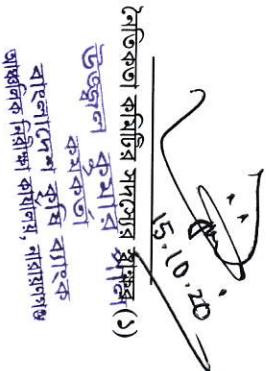 15.10.20
নৈতিকতা কমিটির সদস্যের স্বাক্ষর (১)
উজ্জ্বল কুমার
কর্মকর্তা
বাংলাদেশ কৃষি ব্যাংক
আঞ্চলিক নিরীক্ষা কার্যালয়, নারায়ণগঞ্জ